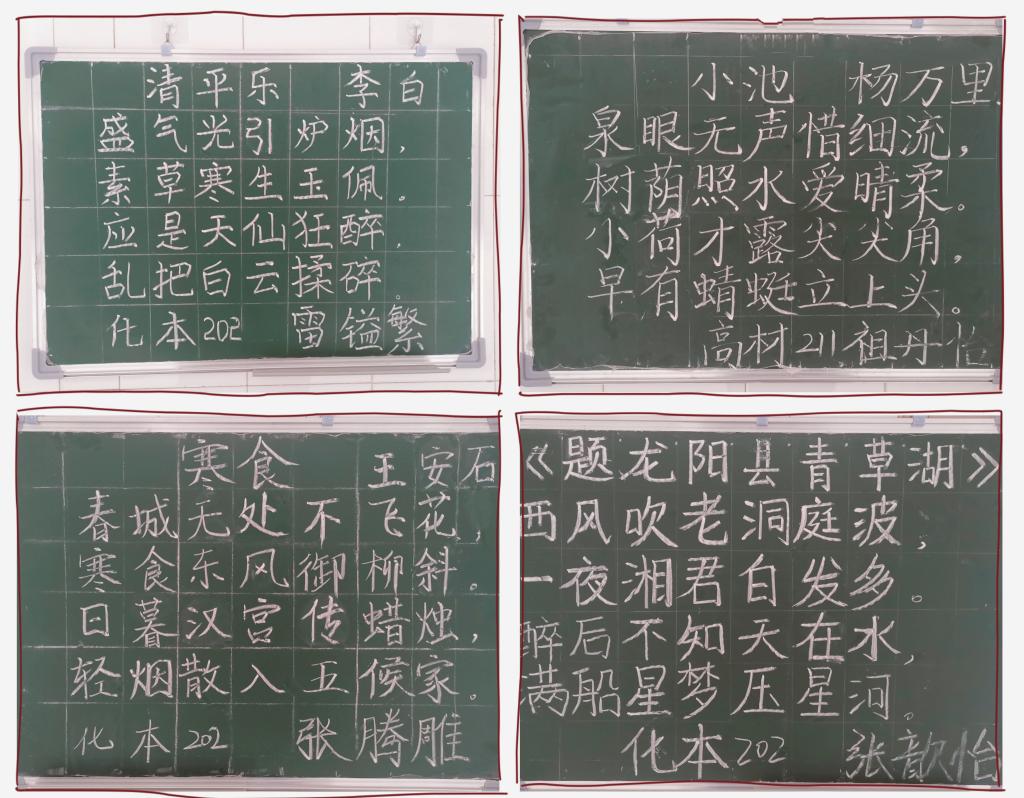 清平乐 李白
盛气光引炉烟，
素草寒生玉佩。
应是天仙狂醉，
乱把白云揉碎。
化本202 雷镒繁
小池 杨万里
泉眼无声惜细流，
树荫照水爱晴柔。
小荷才露尖尖角，
早有蜻蜓立上头。
高材211 祖丹怡
寒食 王安石
春城无处不飞花，
寒食东风御柳斜。
日暮汉宫传蜡烛，
轻烟散入五候家。
化本202 张腾雕
《题龙阳县青草湖》
西风吹老洞庭波，
一夜湘君白发多。
醉后不知天在水，
满船星梦压星河。
化本202 张歆怡